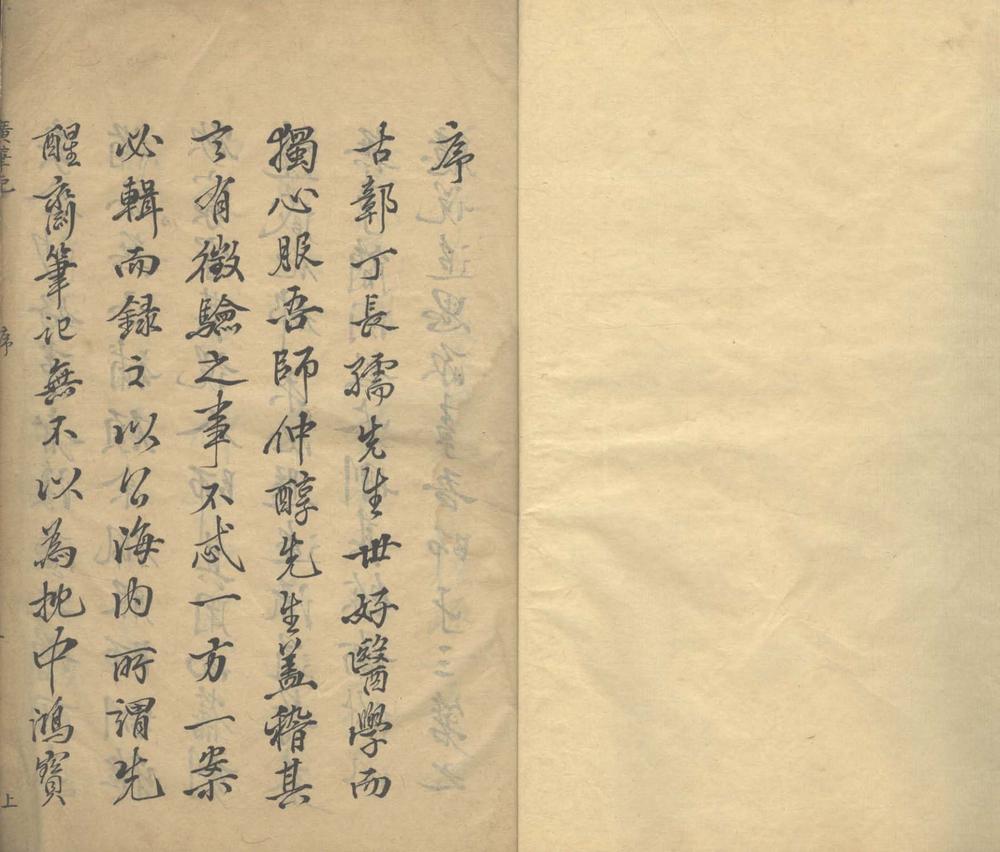 序
古鄣丁長孺先生世好醫學而
獨心服吾師仲醇先生蓋稽其
言有徵驗之事不忒一方一案
必輯而録之以公海内所謂先
醒齋筆記無不以為枕中鴻寶
廣筆記
序
一
上